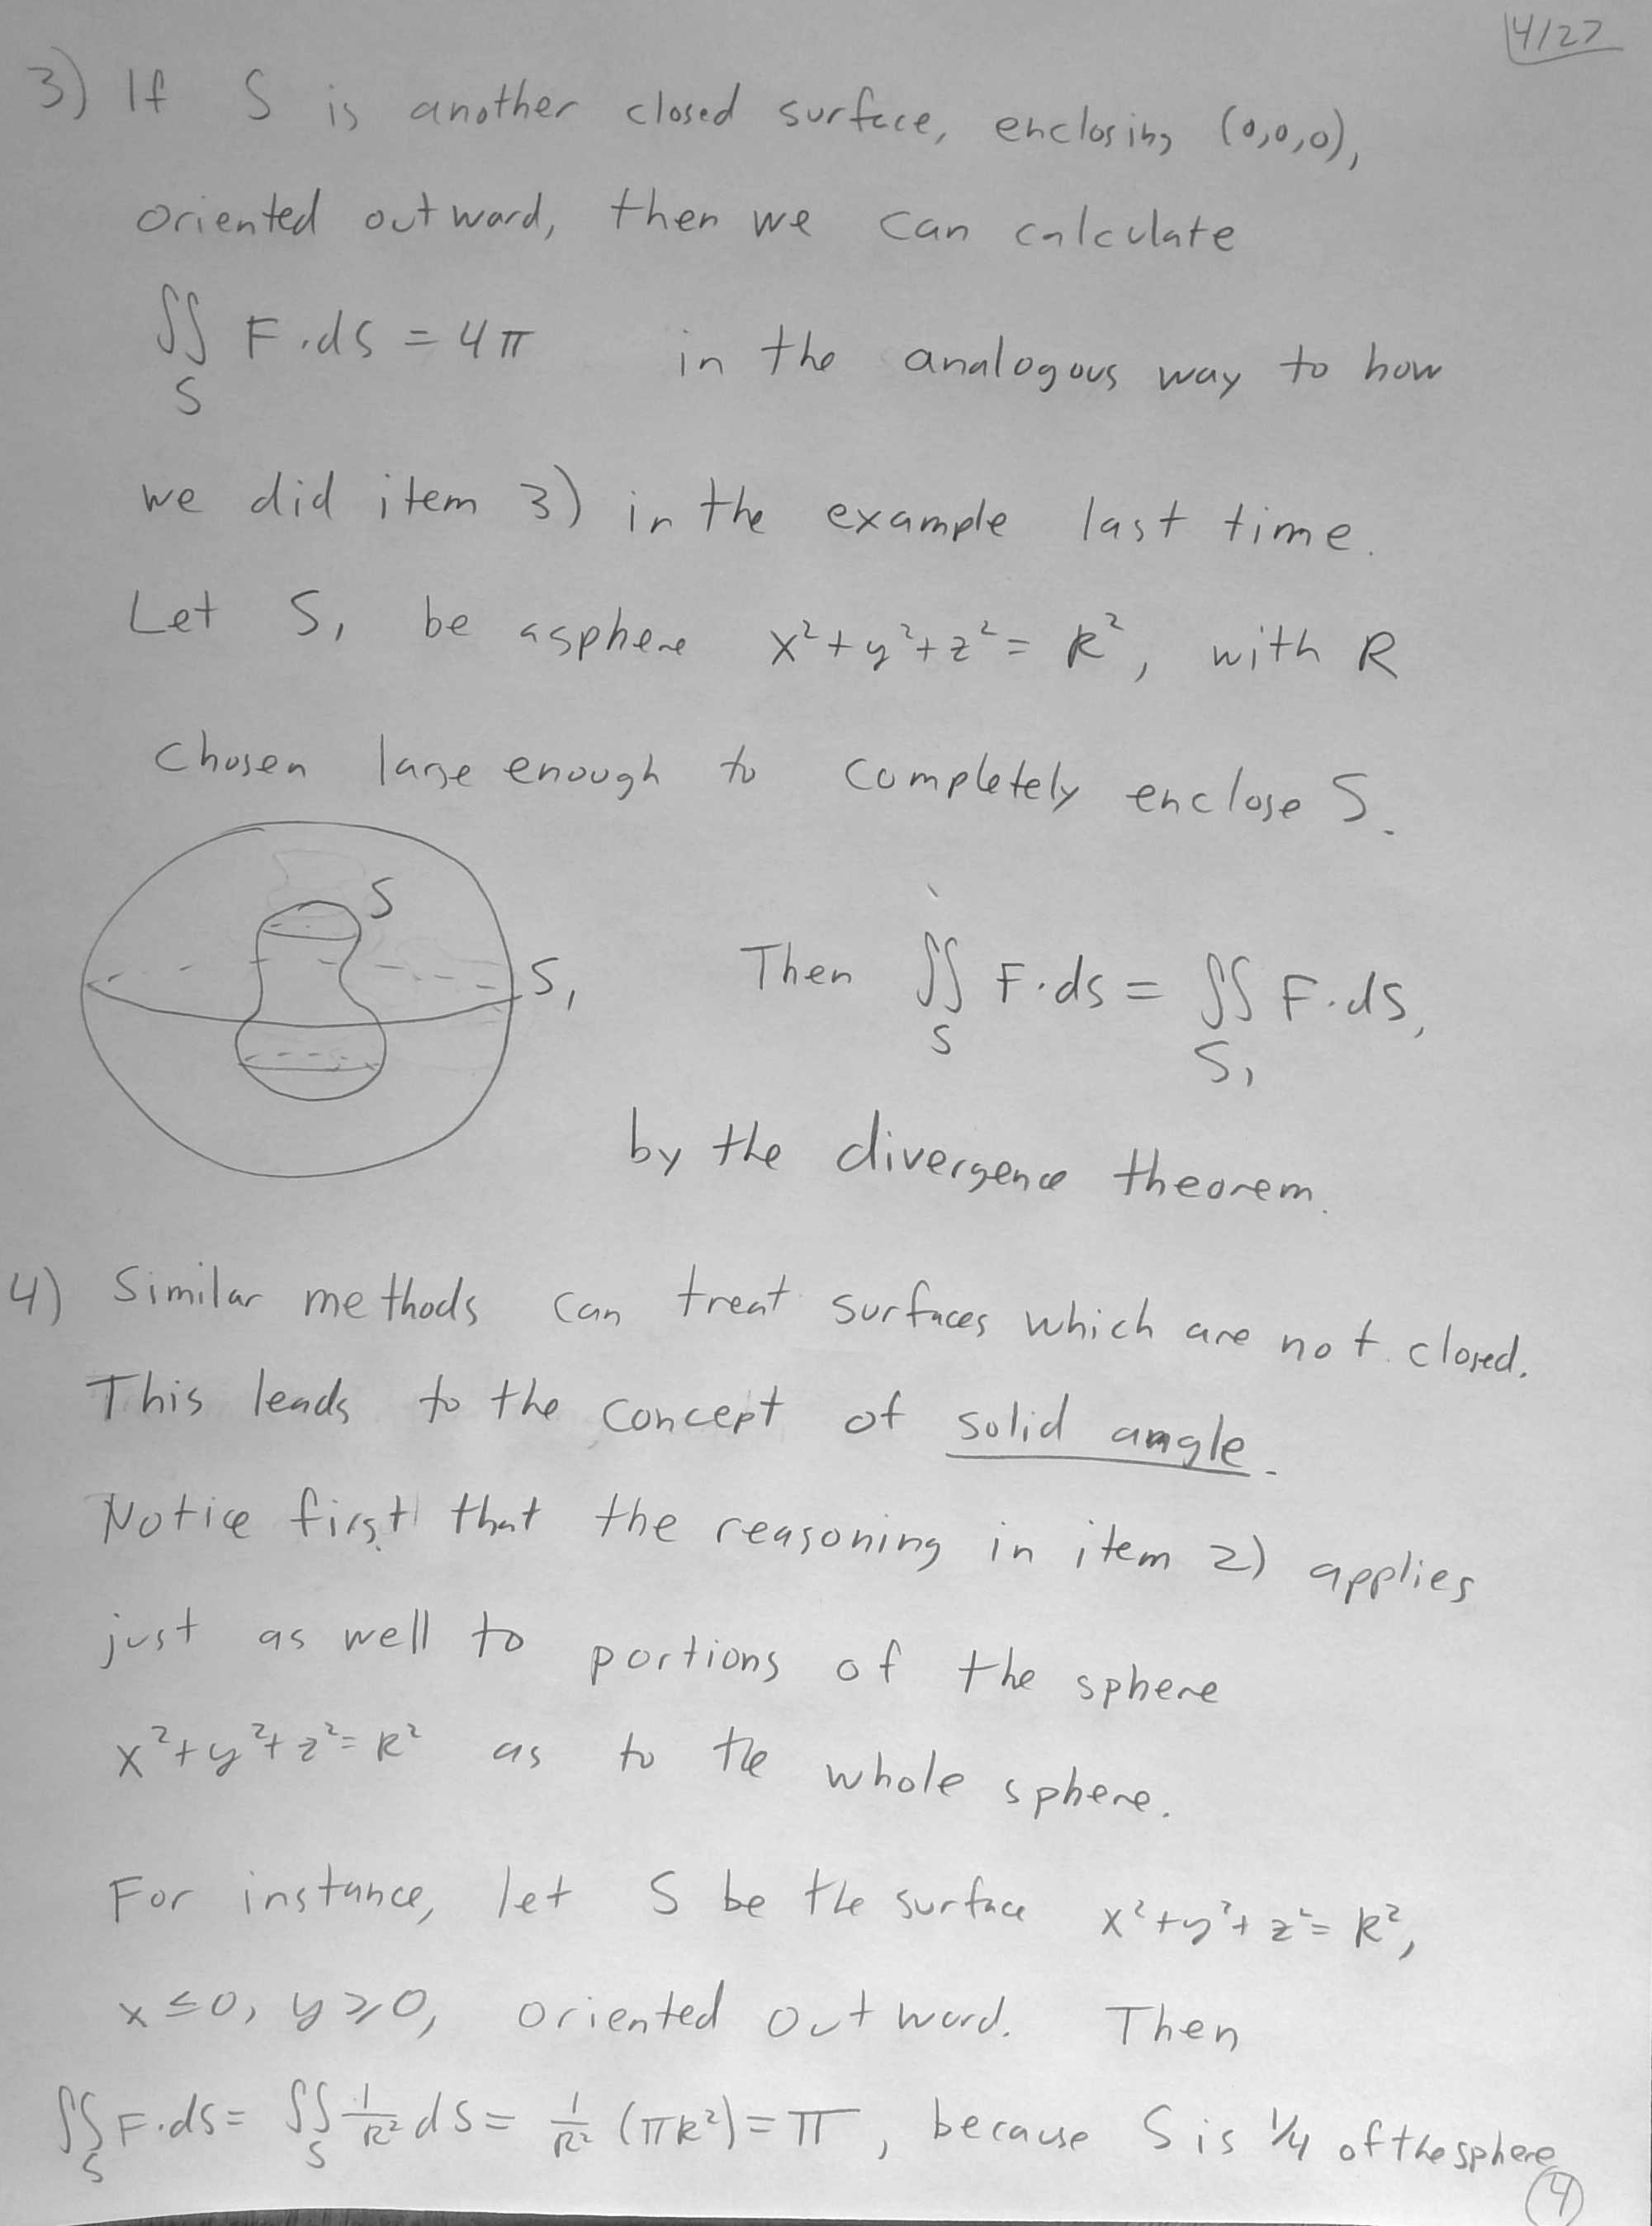 4/27
3) If S is another closed surface, enclosing (0,0,0),
oriented outward, then we can calculate
∬ F·dS = 4π in the analogous way to how
S
we did item 3) in the example last time.
Let S₁ be a sphere x²+y²+z²=R², with R
chosen large enough to completely enclose S.
S
S₁
Then ∬ F·dS = ∬ F·dS,
S S₁
by the divergence theorem.
4) Similar methods can treat surfaces which are not closed.
This leads to the concept of solid angle.
Notice first that the reasoning in item 2) applies
just as well to portions of the sphere
x²+y²+z²=R² as to the whole sphere.
For instance, let S be the surface x²+y²+z²=R²,
x≤0, y≥0, oriented outward. Then
∬ F·dS = ∬ 1/R² dS = 1/R² (πR²) = π, because S is 1/4 of the sphere
S S
4